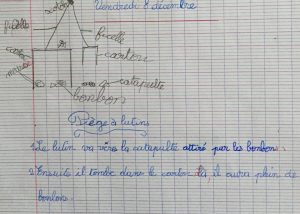 Vendredi 8 décembre
ficelle
carton
catapulte
bonbon
Piège à lutins
1. Le lutin va vers la catapulte attiré par les bonbon.
2. Ensuite il tombe dans le carton là il aura plein de
bonbons.